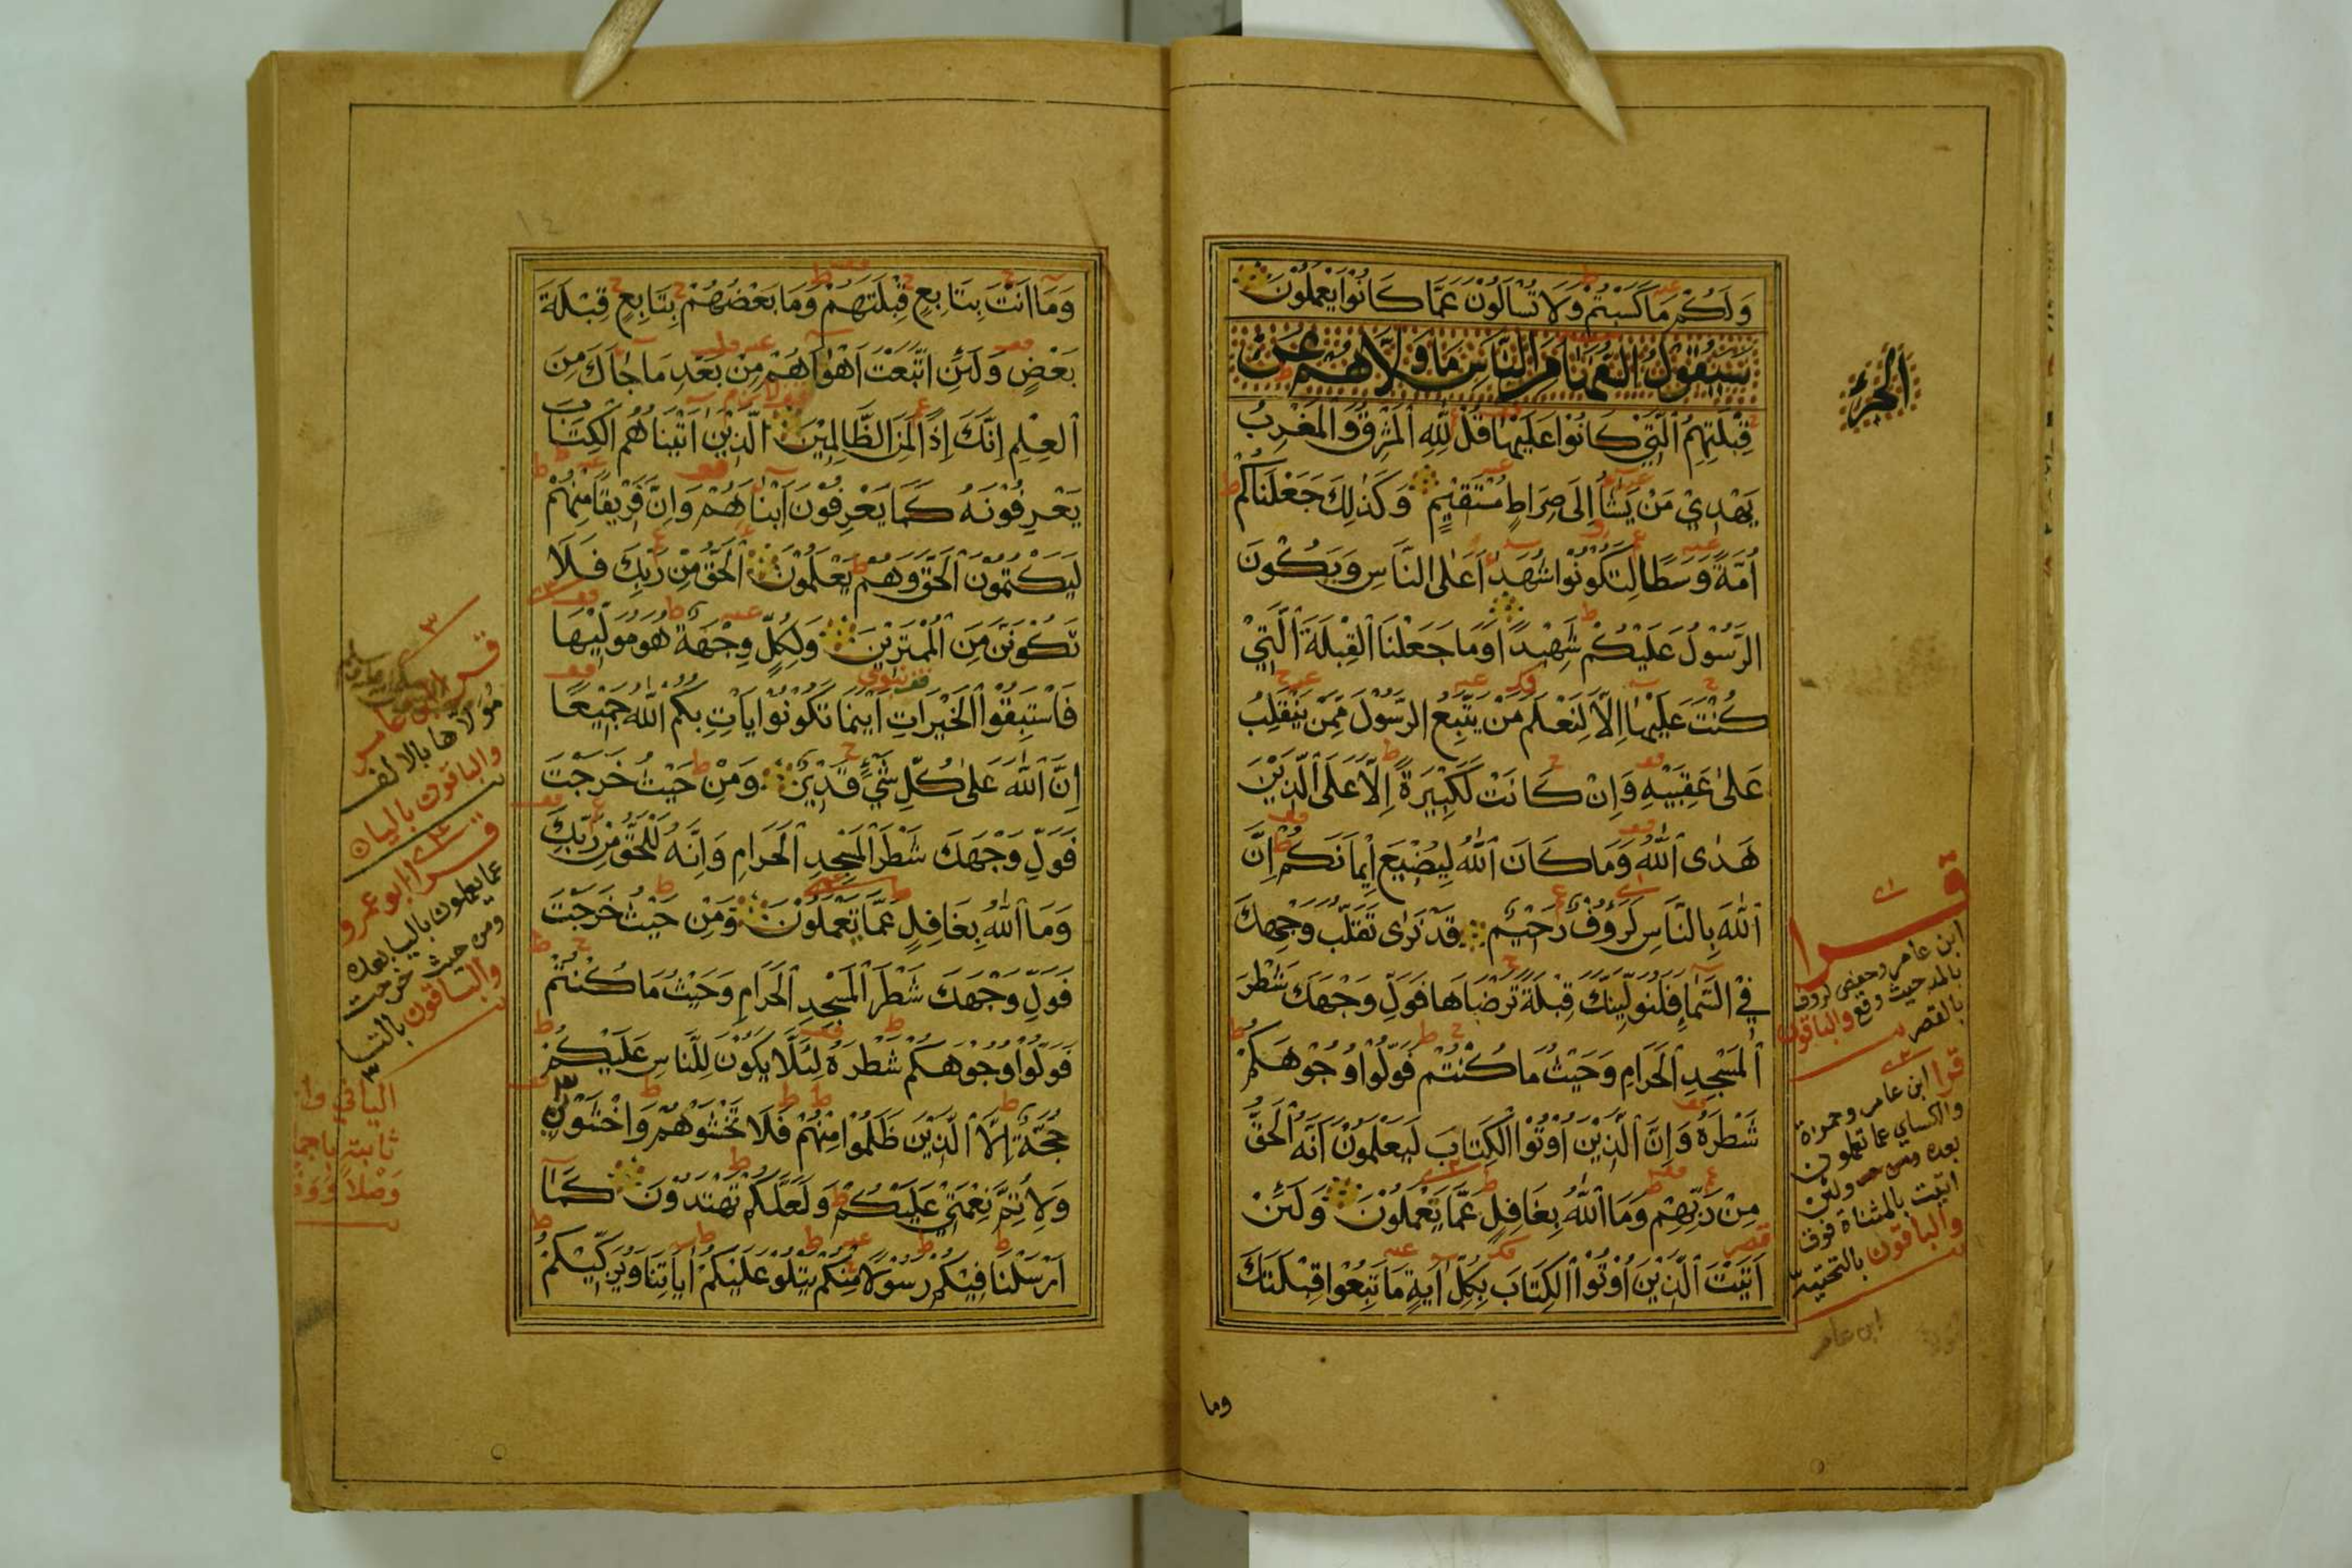 وَلَكُمْ مَا كَسَبْتُمْ وَلَا تُسْأَلُوْنَ عَمَّا كَانُوْا يَعْمَلُوْنَ
سَيَقُوْلُ السُّفَهَاءُ مِنَ النَّاسِ مَا وَلَّاهُمْ عَنْ
قِبْلَتِهِمُ الَّتِيْ كَانُوْا عَلَيْهَا قُلْ لِلّٰهِ الْمَشْرِقُ وَالْمَغْرِبُ
يَهْدِيْ مَنْ يَشَاءُ اِلَى صِرَاطٍ مُسْتَقِيْمٍ وَكَذٰلِكَ جَعَلْنَاكُمْ
اُمَّةً وَسَطًا لِتَكُوْنُوْا شُهَدَاءَ عَلَى النَّاسِ وَيَكُوْنَ
الرَّسُوْلُ عَلَيْكُمْ شَهِيْدًا وَمَا جَعَلْنَا الْقِبْلَةَ الَّتِيْ
كُنْتَ عَلَيْهَا اِلَّا لِنَعْلَمَ مَنْ يَتَّبِعُ الرَّسُوْلَ مِمَّنْ يَنْقَلِبُ
عَلٰى عَقِبَيْهِ وَاِنْ كَانَتْ لَكَبِيْرَةً اِلَّا عَلَى الَّذِيْنَ
هَدَى اللّٰهُ وَمَا كَانَ اللّٰهُ لِيُضِيْعَ اِيْمَانَكُمْ اِنَّ
اللّٰهَ بِالنَّاسِ لَرَؤُوْفٌ رَحِيْمٌ قَدْ نَرٰى تَقَلُّبَ وَجْهِكَ
فِي السَّمَاءِ فَلَنُوَلِّيَنَّكَ قِبْلَةً تَرْضَاهَا فَوَلِّ وَجْهَكَ شَطْرَ
الْمَسْجِدِ الْحَرَامِ وَحَيْثُ مَا كُنْتُمْ فَوَلُّوْا وُجُوْهَكُمْ
شَطْرَهُ وَاِنَّ الَّذِيْنَ اُوْتُوا الْكِتَابَ لَيَعْلَمُوْنَ اَنَّهُ الْحَقُّ
مِنْ رَبِّهِمْ وَمَا اللّٰهُ بِغَافِلٍ عَمَّا يَعْمَلُوْنَ وَلَئِنْ
اَتَيْتَ الَّذِيْنَ اُوْتُوا الْكِتَابَ بِكُلِّ اٰيَةٍ مَا تَبِعُوْا قِبْلَتَكَ
الجزء
قرا
ابن عامر وحفص لرؤف
بالمد حيث وقع والباقون
بالقصر
قرا ابن عامر وحمزة
والكسائي عما تعملون
بعده ولئن
اتيت بالمثناة فوق
والباقون بالتحتية
ابن عامر
وما
وَمَا اَنْتَ بِتَابِعٍ قِبْلَتَهُمْ وَمَا بَعْضُهُمْ بِتَابِعٍ قِبْلَةَ
بَعْضٍ وَلَئِنِ اتَّبَعْتَ اَهْوَاءَهُمْ مِنْ بَعْدِ مَا جَاءَكَ مِنَ
الْعِلْمِ اِنَّكَ اِذًا لَمِنَ الظَّالِمِيْنَ الَّذِيْنَ اٰتَيْنَاهُمُ الْكِتَابَ
يَعْرِفُوْنَهُ كَمَا يَعْرِفُوْنَ اَبْنَاءَهُمْ وَاِنَّ فَرِيْقًا مِنْهُمْ
لَيَكْتُمُوْنَ الْحَقَّ وَهُمْ يَعْلَمُوْنَ الْحَقُّ مِنْ رَبِّكَ فَلَا
تَكُوْنَنَّ مِنَ الْمُمْتَرِيْنَ وَلِكُلٍّ وِجْهَةٌ هُوَ مُوَلِّيْهَا
فَاسْتَبِقُوا الْخَيْرَاتِ اَيْنَمَا تَكُوْنُوْا يَاْتِ بِكُمُ اللّٰهُ جَمِيْعًا
اِنَّ اللّٰهَ عَلٰى كُلِّ شَيْءٍ قَدِيْرٌ وَمِنْ حَيْثُ خَرَجْتَ
فَوَلِّ وَجْهَكَ شَطْرَ الْمَسْجِدِ الْحَرَامِ وَاِنَّهُ لَلْحَقُّ مِنْ رَبِّكَ
وَمَا اللّٰهُ بِغَافِلٍ عَمَّا تَعْمَلُوْنَ وَمِنْ حَيْثُ خَرَجْتَ
فَوَلِّ وَجْهَكَ شَطْرَ الْمَسْجِدِ الْحَرَامِ وَحَيْثُ مَا كُنْتُمْ
فَوَلُّوْا وُجُوْهَكُمْ شَطْرَهُ لِئَلَّا يَكُوْنَ لِلنَّاسِ عَلَيْكُمْ
حُجَّةٌ اِلَّا الَّذِيْنَ ظَلَمُوْا مِنْهُمْ فَلَا تَخْشَوْهُمْ وَاخْشَوْنِيْ
وَلِاُتِمَّ نِعْمَتِيْ عَلَيْكُمْ وَلَعَلَّكُمْ تَهْتَدُوْنَ كَمَا
اَرْسَلْنَا فِيْكُمْ رَسُوْلًا مِنْكُمْ يَتْلُوْ عَلَيْكُمْ اٰيَاتِنَا وَيُزَكِّيْكُمْ
قرا ابن عامر
مولاها بالالف
والباقون باليا
قرا ابو عمرو
عما يعملون باليا بعده
ومن حيث خرجت
والباقون بالتا
اليا في وا
ثابتة باجما
وصلا ووقف